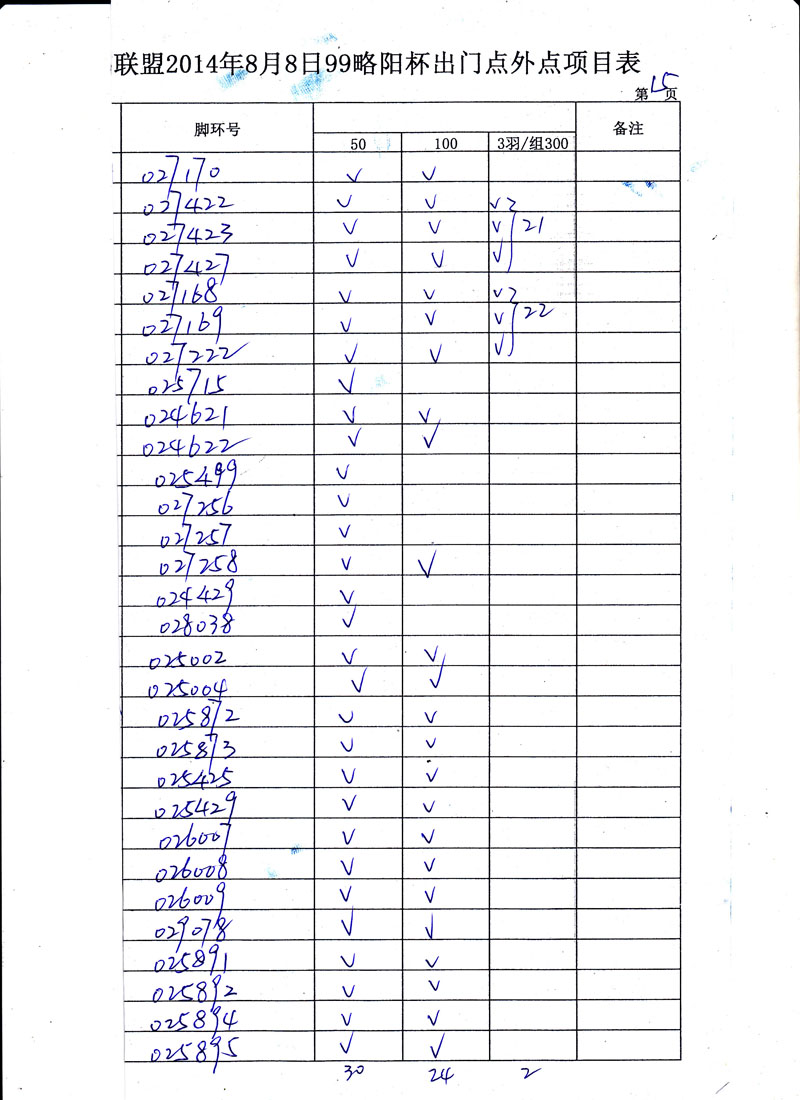 联盟2014年8月8日99略阳杯出门点外点项目表
第15页
脚环号 50 100 3羽/组300 备注
027170 √ √
027422 √ √ √
027423 √ √ √ 21
027427 √ √ √
027168 √ √ √
027169 √ √ √ 22
027222 √ √ √
025715 √
024621 √ √
024622 √ √
025499 √
027256 √
027257 √
027258 √ √
024429 √
028038 √
025002 √ √
025004 √ √
025872 √ √
025873 √ √
025425 √ √
025429 √ √
026007 √ √
026008 √ √
026009 √ √
029078 √ √
025891 √ √
025892 √ √
025894 √ √
025895 √ √
30 24 2